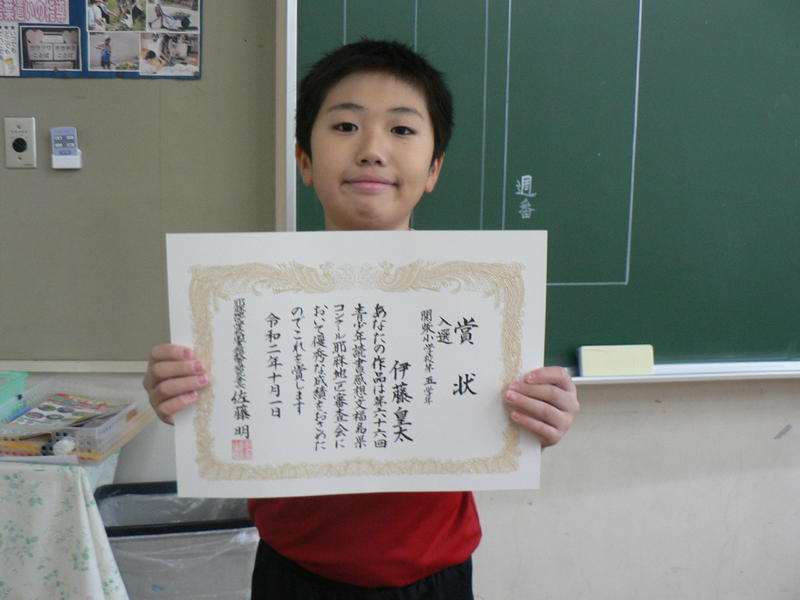 賞状
入選
関柴小学校第五学年
伊藤皇太
あなたの作品は第六十六回
青少年読書感想文福島県
コンクール耶麻地区審査会に
おいて優秀な成績をおさめた
のでこれを賞します
令和二年十月一日
佐藤明
週番